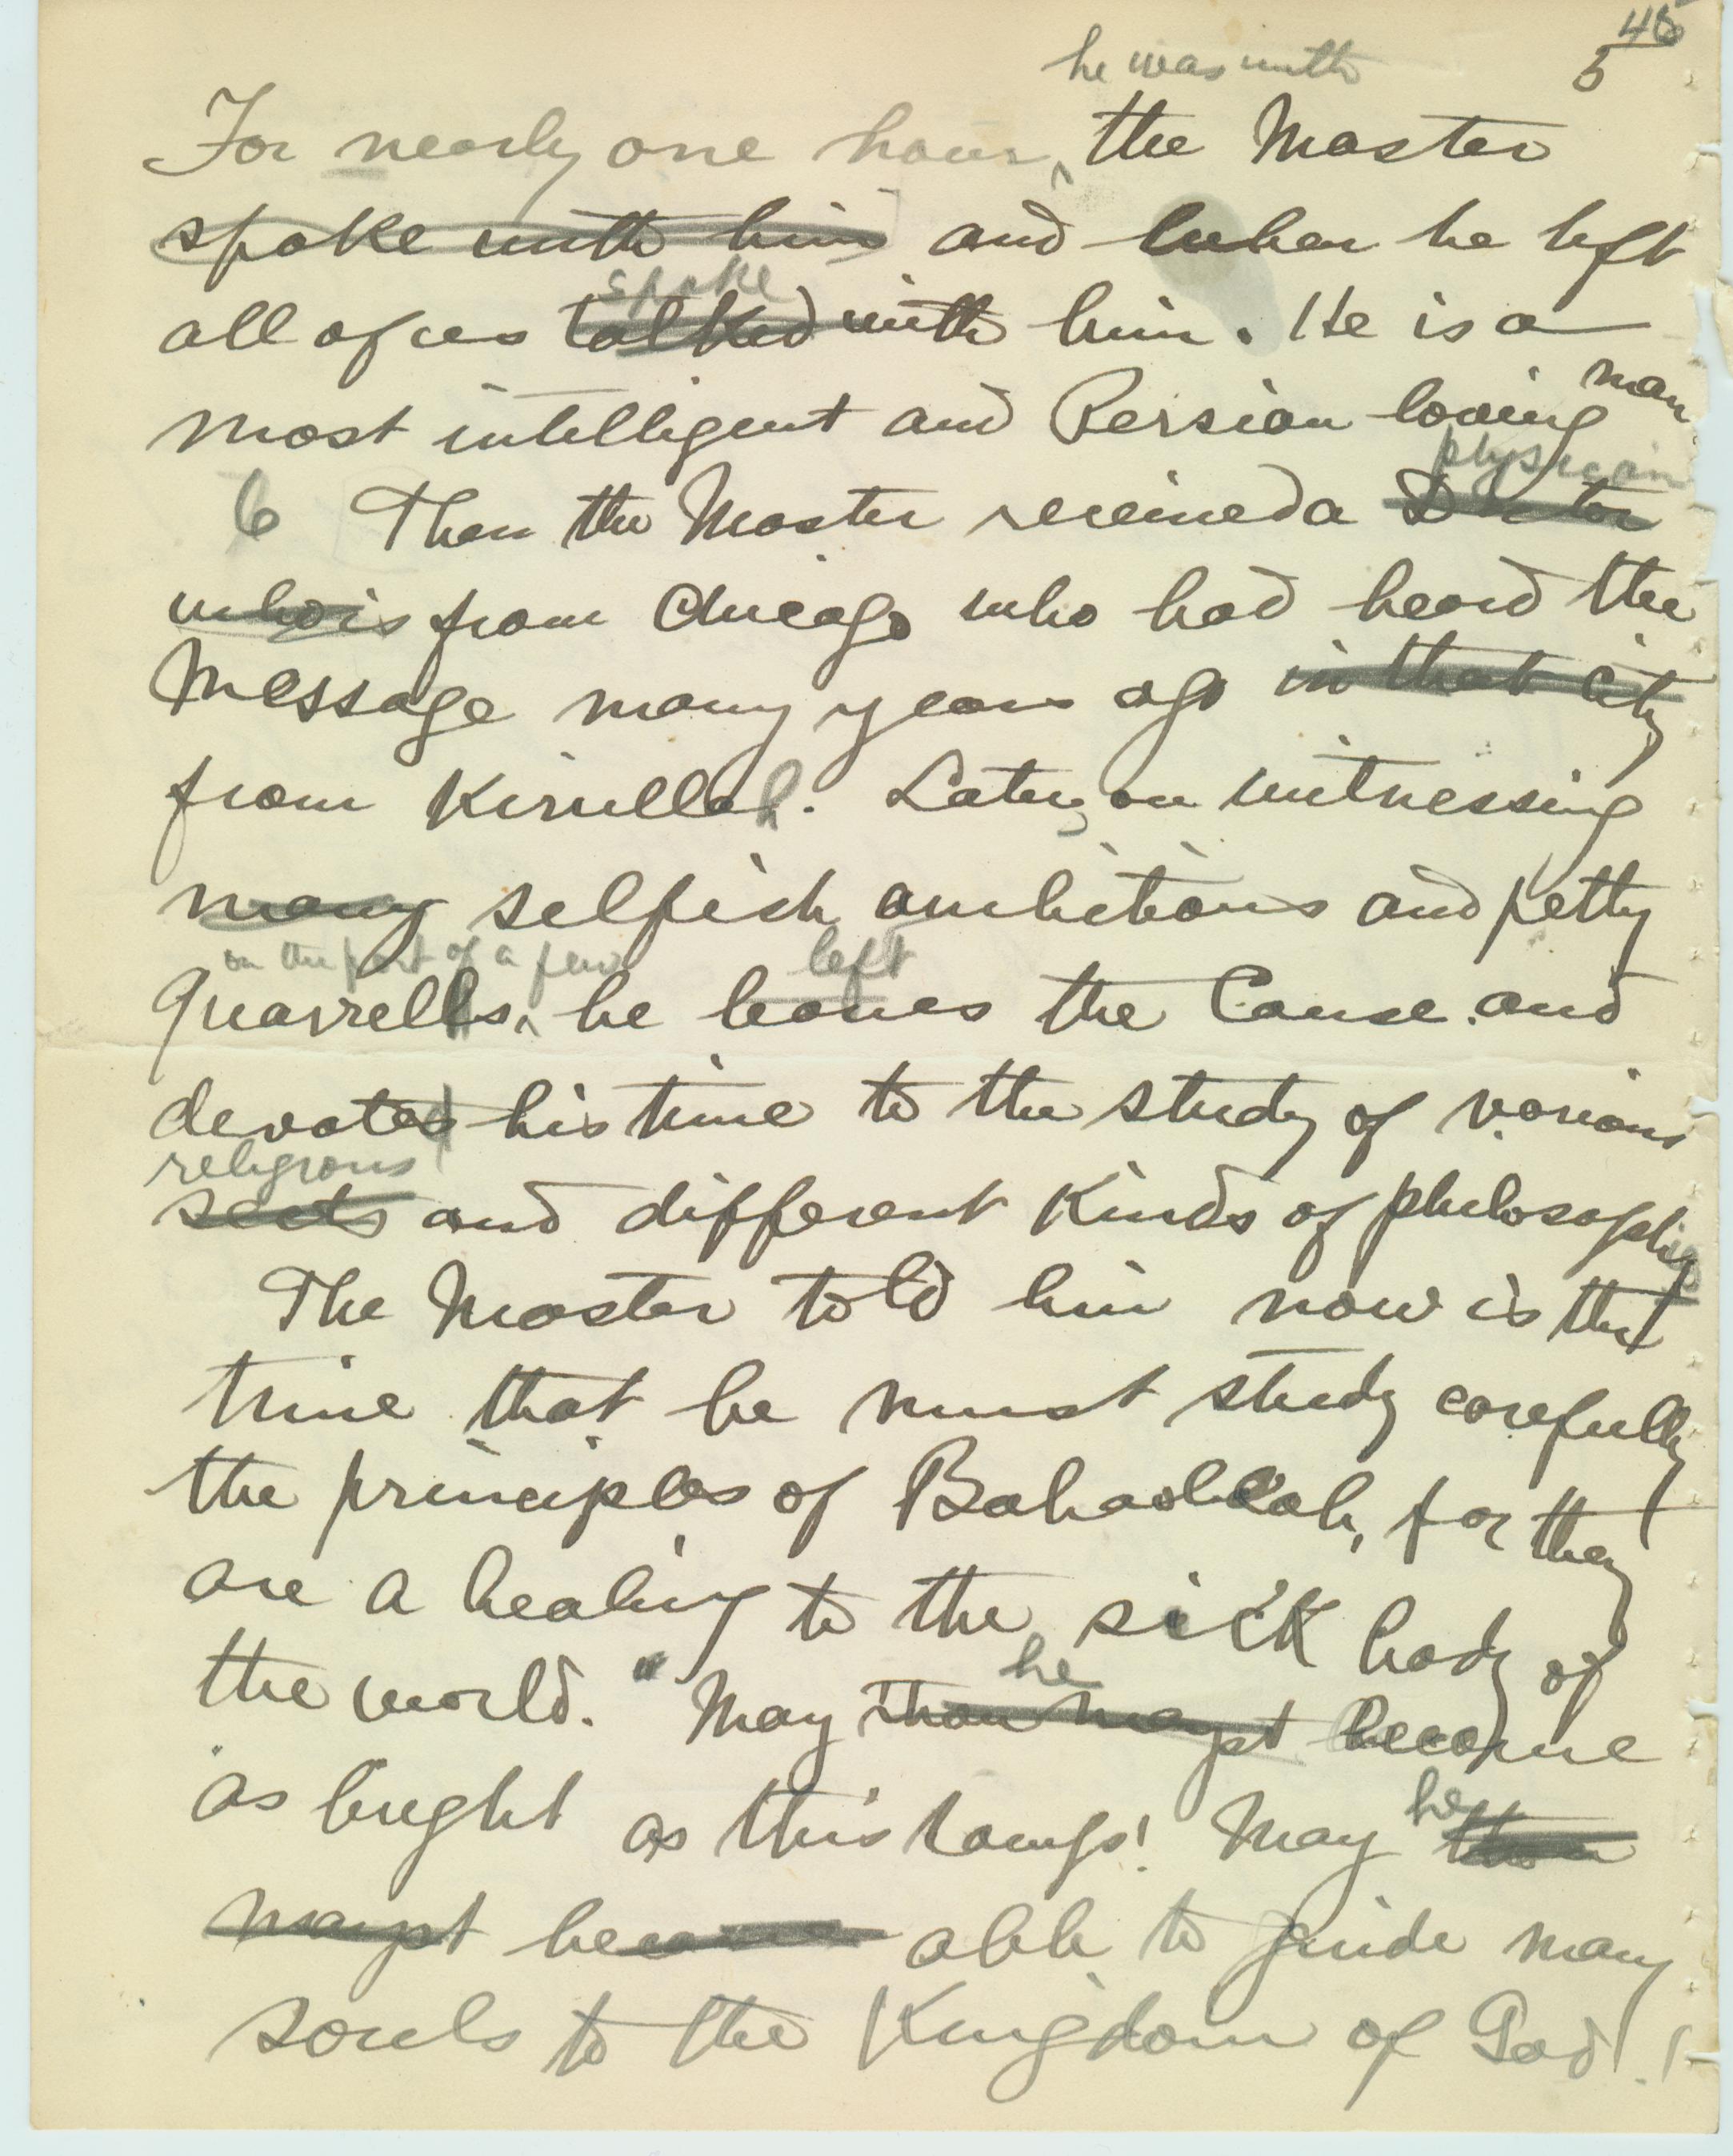 46
5
he was with
For nearly one hour, the Master
spoke with him and when he left
spoke
all of us talked with him. He is a
man
most intelligent and Persian loving
physician
6 Then the Master received a Doctor
who is from Chicago who had heard the
Message many years ago in that city
from Kirullah. Later, on witnessing
many selfish ambitions and petty
on the part of a few left
Quarrells, he leaves the Cause and
devoted his time to the study of various
religions
sects and different Kinds of philosophies
The Master told him now is the
time that he must study carefully
the principles of Bahaollah, for they
are a healing to the sick body of
he
the world. "May thou mayst become
as bright as this lamp! May he thou
mayst become able to guide many
souls to the Kingdom of God!